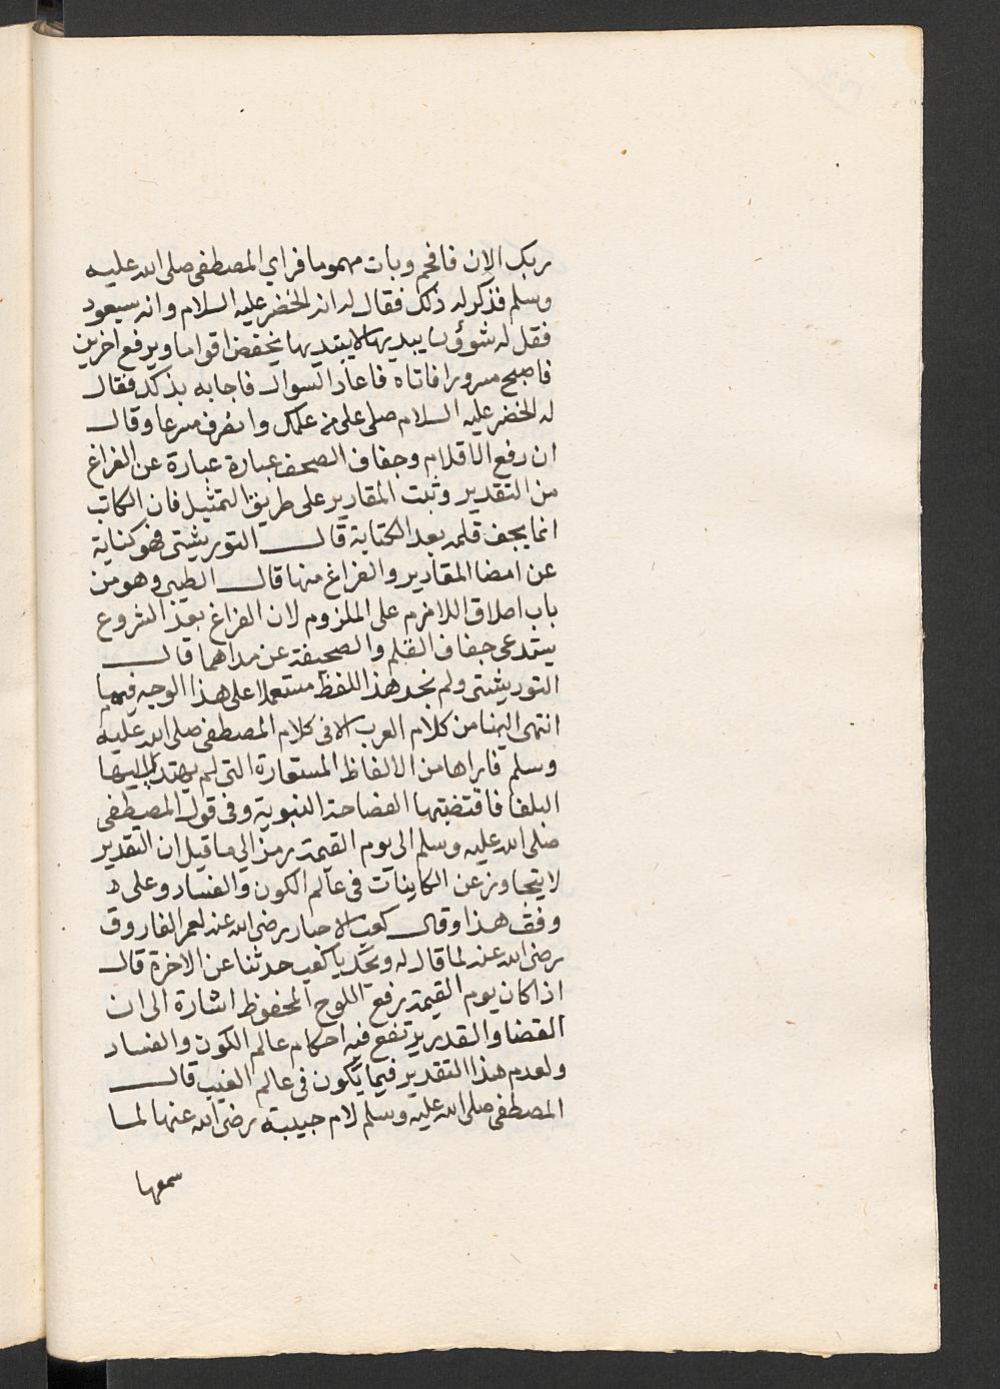 ربك الان فافحم وبات مهموما فراي المصطفى صلى الله عليه
وسلم فذكر له ذلك فقال له انه الخضر عليه السلام وانه سيعود
فقل له شوؤن يبديها لا يبتديها يخفض اقواما ويرفع اخرين
فاصبح مسرورا فاتاه فاعاد السوال فاجابه بذلك فقال
له الخضر عليه السلام صلى على من علمك وانصرف مسرعا وقال
ان رفع الاقلام وجفاف الصحف عبارة عبارة عن الفراغ
من التقدير وثبت المقادير على طريق التمثيل فان الكاتب
انما يجف قلمه بعد الكتابة قال التوربشتى فهو كناية
عن امضا المقادير والفراغ منها قال الطيبى وهو من
باب اطلاق اللازم على الملزوم لان الفراغ بعد الشروع
يستدعى جفاف القلم والصحيفة عن مدادهما قال
التوربشتى ولم نجد هذا اللفظ مستعملا على هذا الوجه فيما
انتهى الينا من كلام العرب الا فى كلام المصطفى صلى الله عليه
وسلم فاراها من الالفاظ المستعارة التى لم يهتد اليها
البلغا فاقتضتها الفصاحة النبوية وفى قول المصطفى
صلى الله عليه وسلم الى يوم القيمة رمز الي ما قيل ان التقدير
لا يتجاوز عن الكاينات فى عالم الكون والفساد وعلى
وفق هذا وقال كعب الاحبار رضى الله عنه لعمر الفاروق
رضى الله عنه لما قال له ويحك يا كعب حدثنا عن الاخرة قال
اذا كان يوم القيمة رفع اللوح المحفوظ اشارة الى ان
القضا والقدر يرتفع فيه احكام عالم الكون والفساد
ولعدم هذا التقدير فيما يكون فى عالم الغيب قال
المصطفى صلى الله عليه وسلم لام حبيبة رضى الله عنها لما
سمعها